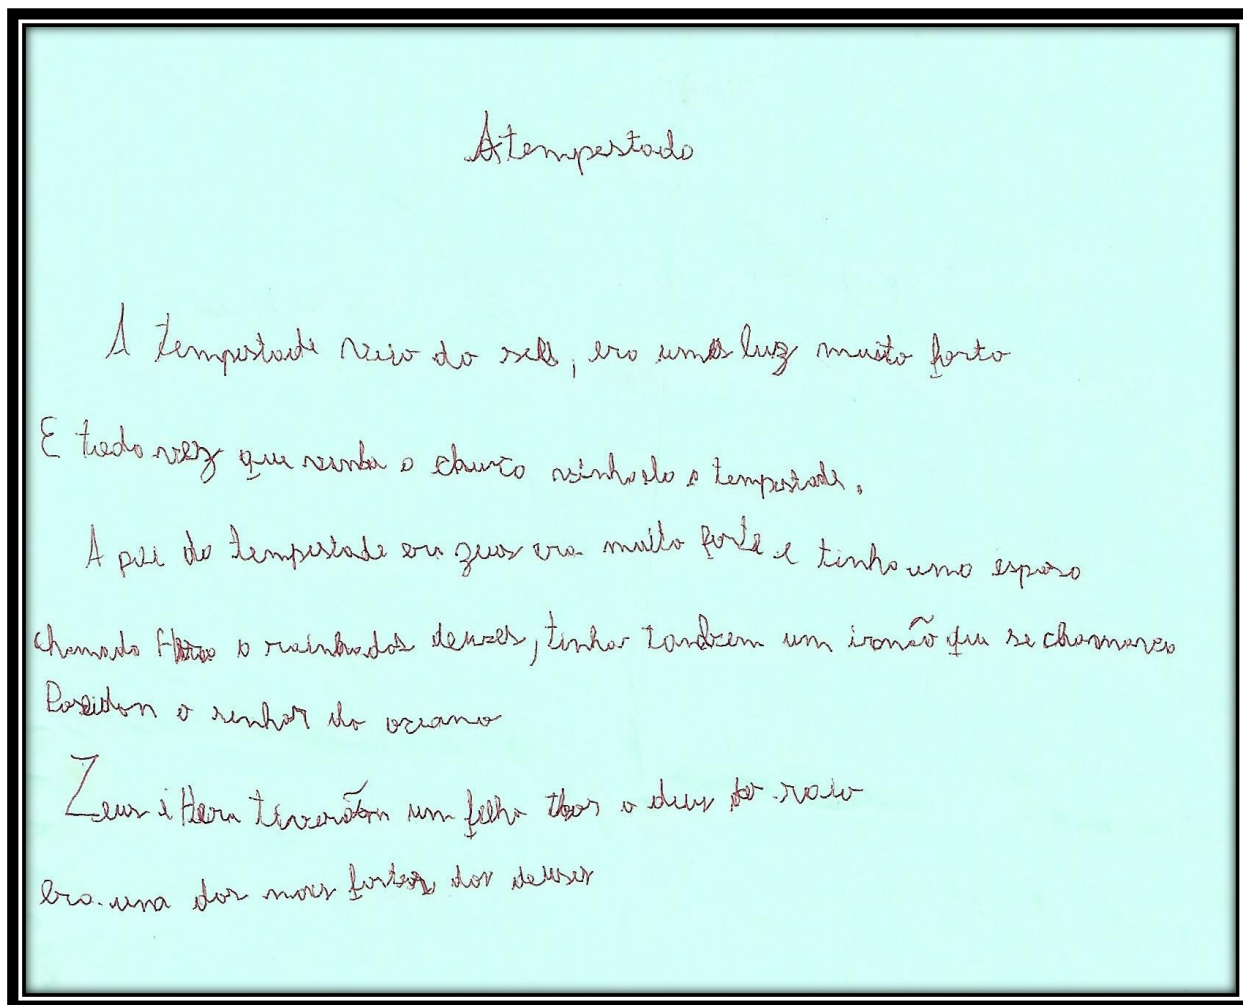 A tempestade
A tempestade veio do seu, era uma luz muito forte
E toda vez que vinha a chuva vinha da a tempestade.
A pai da tempestade era zeus era muito forte e tinha uma esposa
chamada Hera a rainha dos deuzes, tinha tanbem um irmão que se chamava
Poseidon o senhor do oceano
Zeus i Hera tiverão um filho thor o deus do raio
era. um dos mais fortes dos deuses